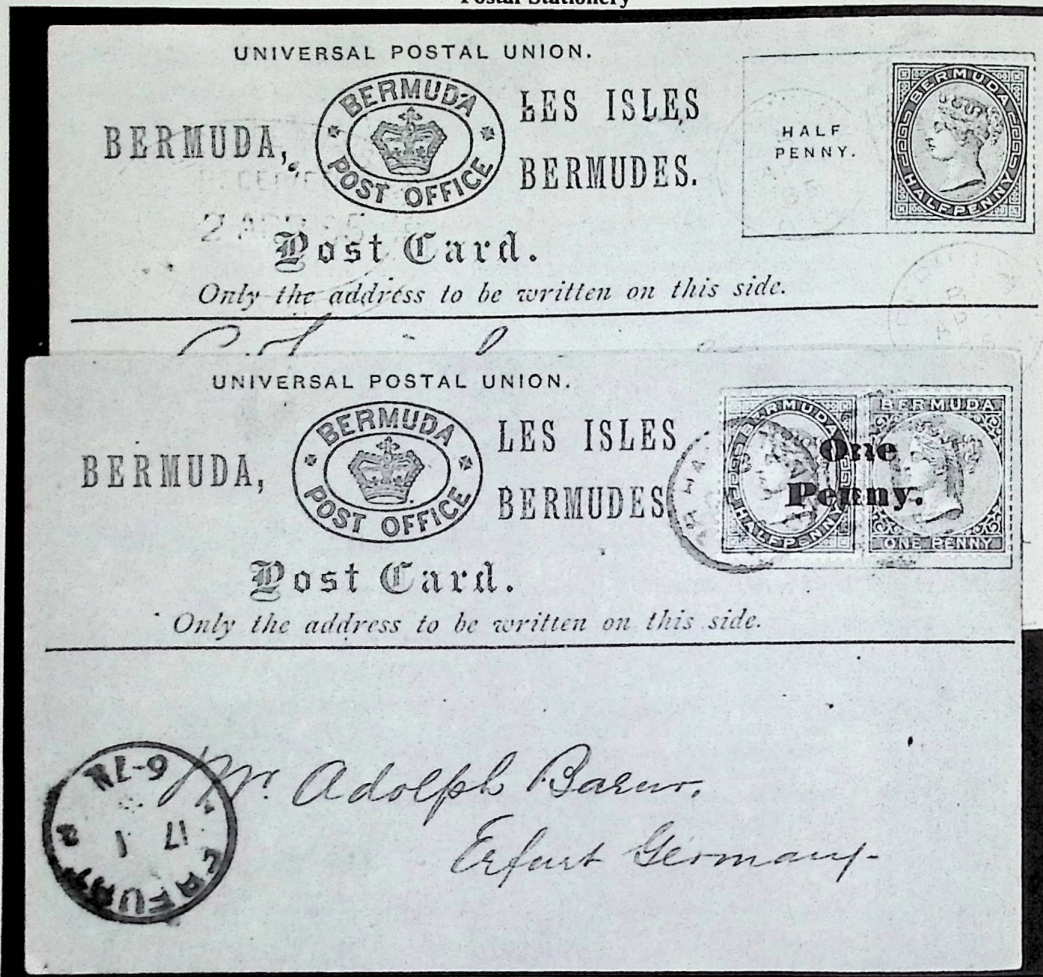 Postal Stationery
UNIVERSAL POSTAL UNION.
BERMUDA,
BERMUDA
POST OFFICE
LES ISLES
BERMUDES.
HALF
PENNY.
BERMUDA
HALFPENNY
2 AP
Post Card.
Only the address to be written on this side.
UNIVERSAL POSTAL UNION.
BERMUDA,
BERMUDA
POST OFFICE
LES ISLES
BERMUDES
BERMUDA
HALFPENNY
BERMUDA
ONE PENNY
One
Penny.
Post Card.
Only the address to be written on this side.
Mr. Adolph
Erfurt Germany.
ERFURT
17 1
6-7N